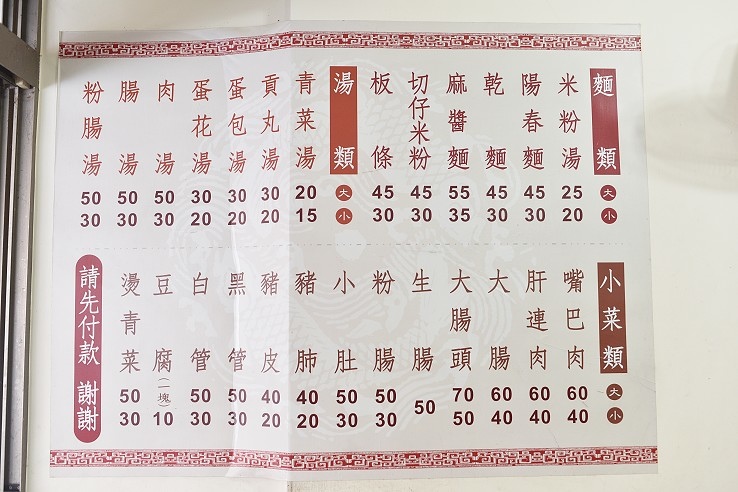 麵類 大 小
米粉湯 25 20
陽春麵 45 30
乾麵 45 30
麻醬麵 55 35
切仔米粉 45 30
板條 45 30
湯類 大 小
青菜湯 20 15
貢丸湯 30 20
蛋包湯 30 20
蛋花湯 30 20
肉湯 50 30
腸湯 50 30
粉腸湯 50 30
小菜類 大 小
嘴巴肉 60 40
肝連肉 60 40
大腸 60 40
大腸頭 70 50
生腸 50
粉腸 50 30
小肚 50 30
豬肺 40 20
豬皮 40 20
黑管 50 30
白管 50 30
豆腐(一塊) 10
燙青菜 50 30
請先付款 謝謝